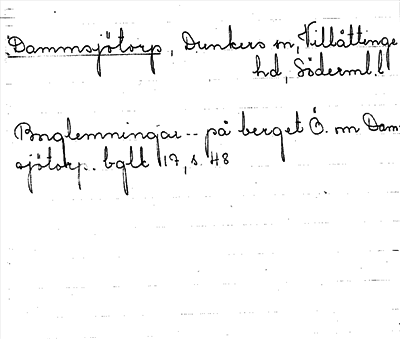 Dammsjötorp, Dunkers sn, Villåttinge
hd, Söderml. l
Borglemningar -- på berget Ö. om Dam-
sjötorp.. bglk 17, s. 48